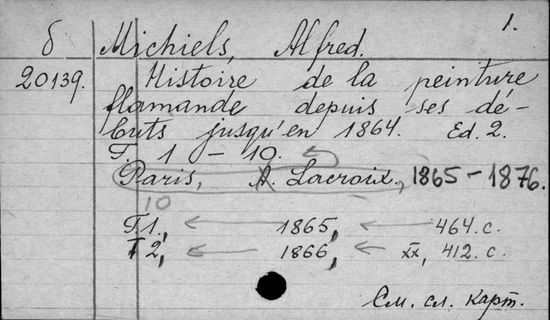 1.
б Michiels, Alfred.
20139. Histoire de la peinture
flamande depuis ses dé-
buts jusqu'en 1864. Ed. 2.
T. 1 – 10.
Paris, A. Lacroix, 1865 – 1876.
10
T. 1, 1865, 464 c.
T 2, 1866, xx, 412 c.
См. сл. карт.